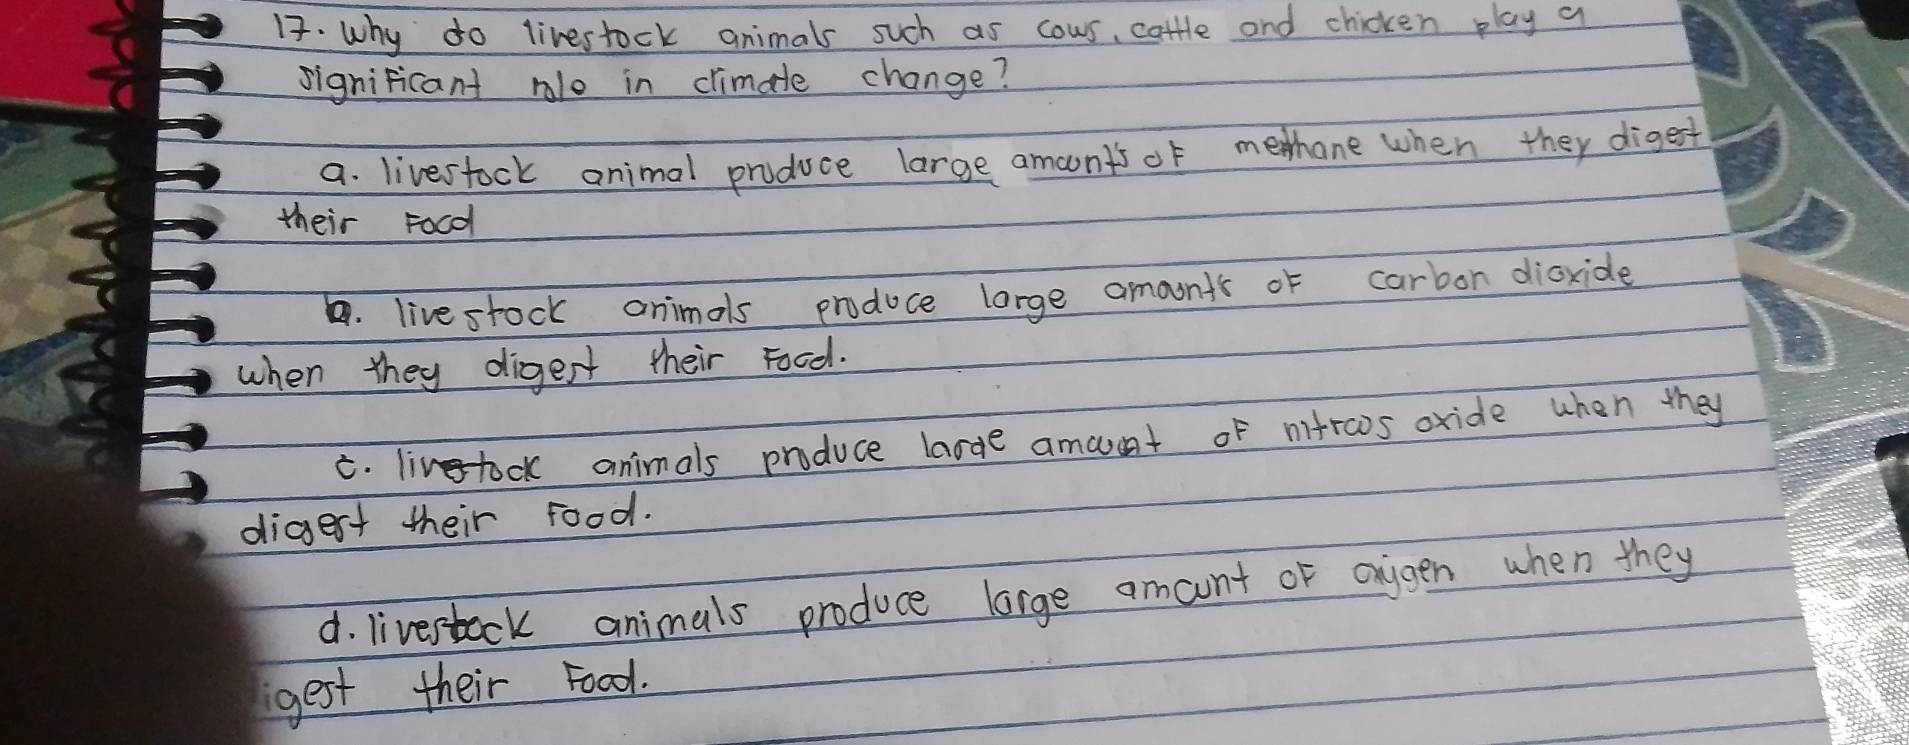 17. Why do livestock animals such as cows, cattle and chicken play a
significant role in climate change?
a. livestock animal produce large amounts of methane when they digest
their Food
b. livestock animals produce large amounts of carbon dioxide
when they digest their Food.
c. livestock animals produce large amount of nitrous oxide when they
digest their Food.
d. livestock animals produce large amount of oxygen when they
igest their Food.